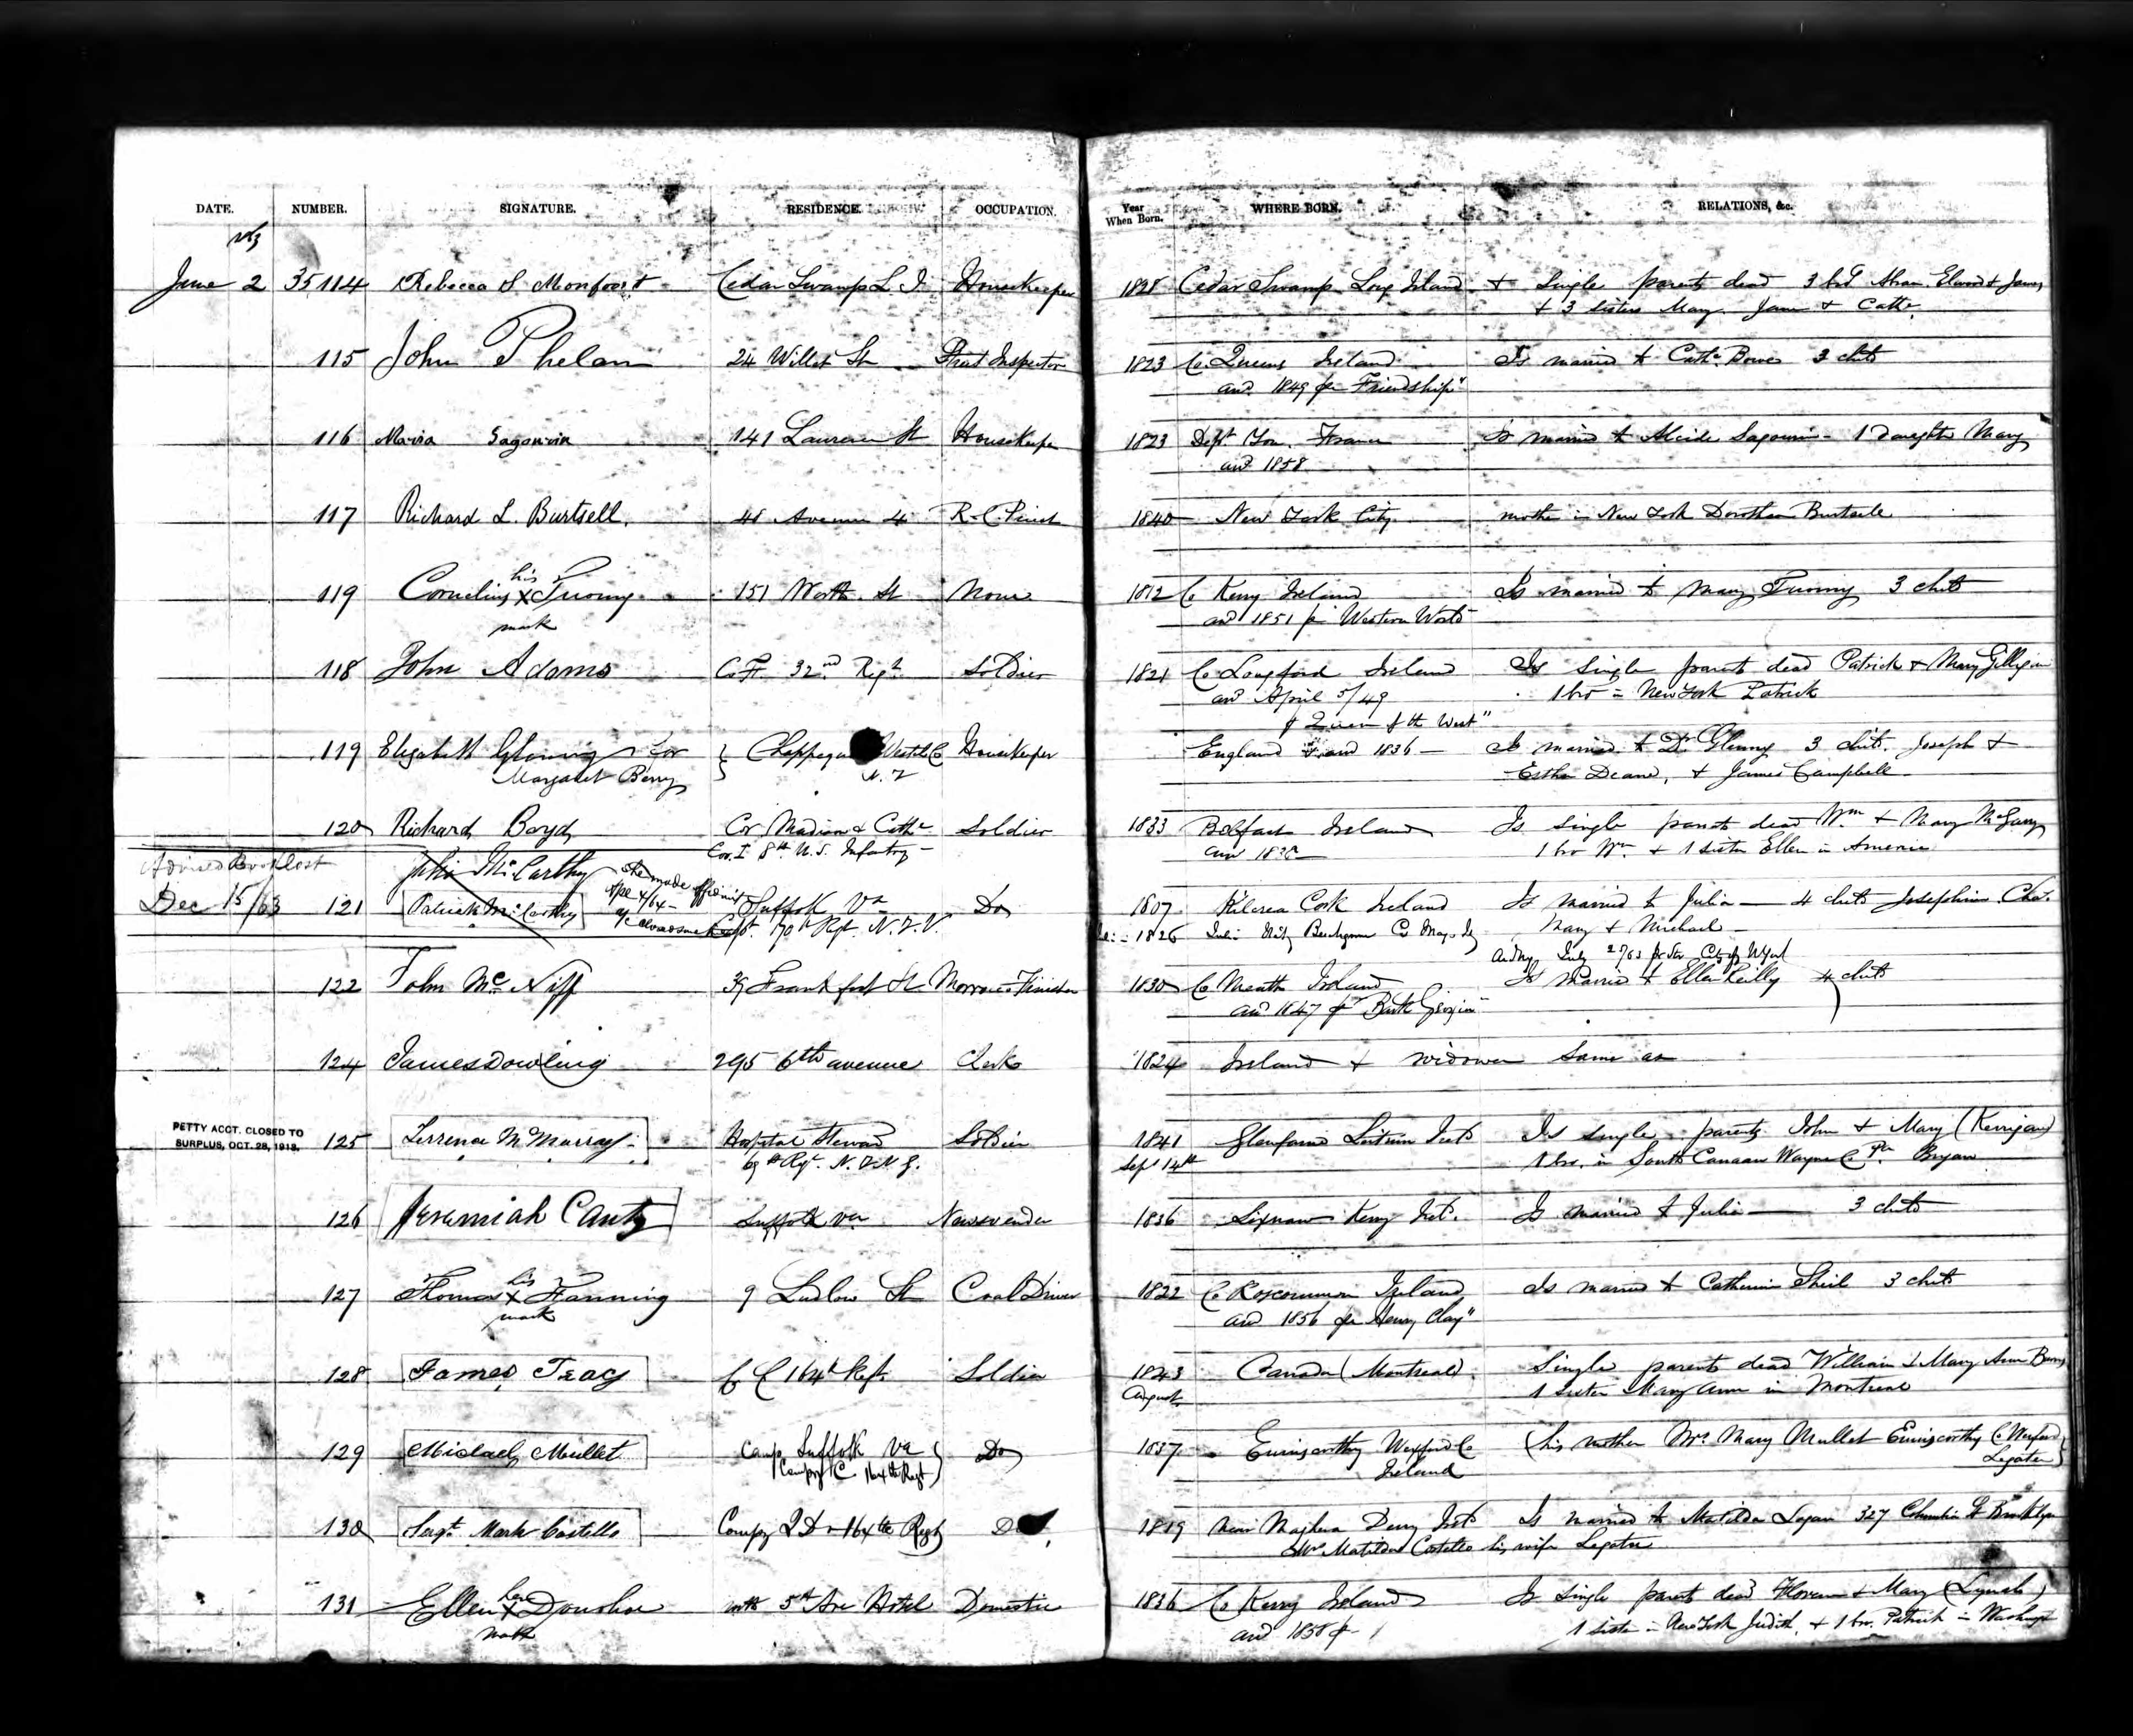 DATE. NUMBER. SIGNATURE. RESIDENCE. OCCUPATION. Year When Born. WHERE BORN. RELATIONS, &c.
June 2 35,114 Rebecca S Monfoort Cedar Swamp L. I Housekeeper 1828 Cedar Swamp Long Island + Single parents dead 3 bros Abram Elwood & James
+ 3 sisters Mary Jane & Cathe.
115 John Phelan 24 Willet St Street Inspector 1823 Co. Queens Ireland Is married to Cathe. Bowe 3 chds
arrd. 1849 per Friendship"
116 Maria Sagourin 141 Laurens St Housekeeper 1823 Dept. France Is married to Alcide Sagourin - 1 Daughter Mary
arrd 1858
117 Richard L. Burtsell. 48 Avenue 4 R. C. Priest 1840 New York City mother in New York Dorothea Burtsell
119 Cornelius his X mark Tuomy 151 Worth St None 1812 Co Kerry Ireland Is married to Mary Tuomy 3 chds
arrd 1851 pr Western World
118 John Adams Co. H 32nd Regt. Soldier 1821 Co Longford Ireland Is single parents dead Patrick & Mary Gilligan
arrd April 5/49 1 bro in New York Patrick
pr Queen of the West"
119 Elizabeth Glenny for Chappaqua Westch Co Housekeeper England arrd 1836 Is married to Dr Glenny 3 chds. Joseph &
Margaret Berry N. Y Esther Deane, & James Campbell
120 Richard Boyd Cor Madison & Cathe Soldier 1833 Belfast Ireland Is single parents dead Wm. & Mary McGarry
Co. I 8th U. S. Infantry arrd 1 bro Wm. & 1 sister Ellen in America
Advised Book lost Julia McCarthy She made affidavit
Dec 15/63 121 Patrick McCarthy Apl 4/64 Suffolk Va Do 1807 Kilcrea Cork Ireland Is married to Julia 4 chds Josephine Chas.
170th Rgt. N. Y. V. 1826 Julia Mary & Michael
July 2/63 City of
122 John McNiff 39 Frankfort St Morrocco Finisher 1830 Co Meath Ireland Is married to Ellen Reilly 4 chds
arrd 1847 pr Bark Georgian"
124 James Dowling 295 6th avenue Clerk 1824 Ireland + widower same as
PETTY ACCT. CLOSED TO
SURPLUS, OCT. 28, 1913. 125 Terrence McMurray Hospital Steward Soldier 1841 Glenfarne Leitrim Ireld Is single parents John & Mary (Kerrigan)
69th Rgt. N. Y. N. G. Sept 14th 1 bro. in South Canaan Wayne Co Pa. Bryan
126 Jeremiah Canty Suffolk Va Newsvender 1836 Lixnaw Kerry Ireld. Is married to Julia 3 chds
127 Thomas his X mark Fanning 9 Ludlow St Coal Driver 1822 Co Roscommon Ireland Is married to Catherine Sheil 3 chds
arrd 1856 per Henry Clay"
128 James Tracy Co C 164th Regt. Soldier 1843 Canada (Montreal) Single parents dead William & Mary Ann
August 1 sister Mary Ann in Montreal
129 Michael Mullet Camp Suffolk Va Do 1837 Enniscorthy Wexford Co (his mother Mrs. Mary Mullet Enniscorthy Co Wexford
Compy C 164th Regt Ireland Legatee)
130 Sergt. Mark Costello Compy D 164th Regt Do 1819 Near Maghera Derry Ireld Is married to Matilda Logan 327 Columbia St Brooklyn
Mrs. Matilda Costello his wife Legatee
131 Ellen her X mark Donohoe with 5th Ave Hotel Domestic 1836 Co Kerry Ireland Is single parents dead Florence & Mary (Lynch)
arrd 1858 pr 1 sister in New York Judith, & 1 bro. Patrick in